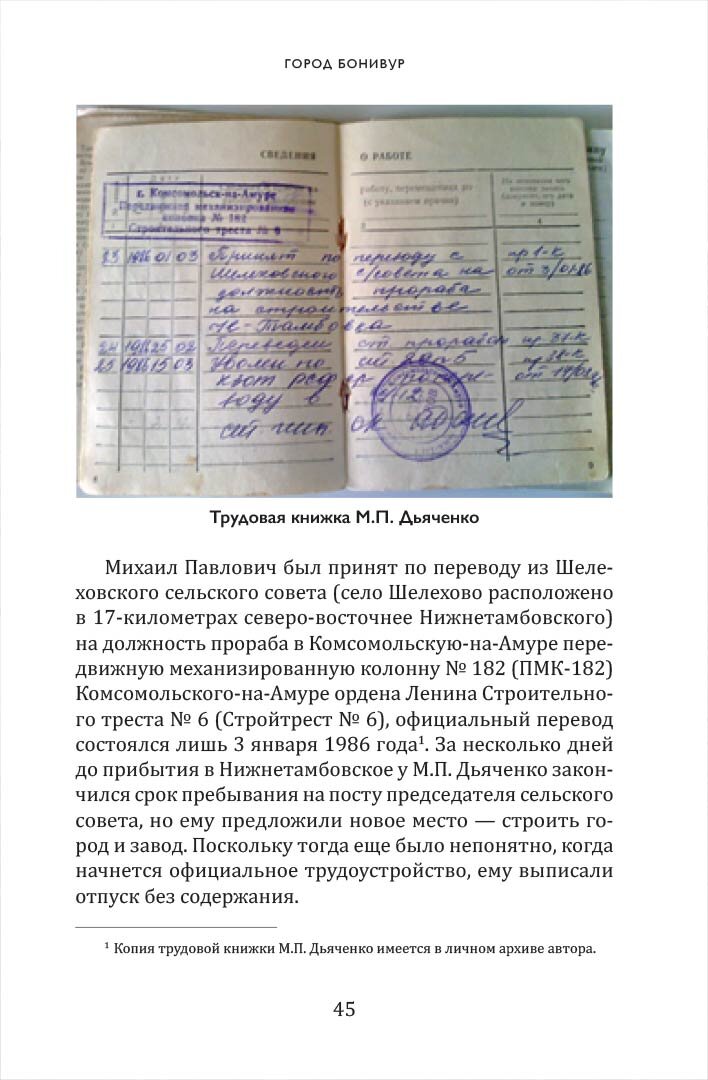 ГОРОД БОНИВУР
СВЕДЕНИЯ О РАБОТЕ
г. Комсомольск-на-Амуре
Передвижная механизированная
колонна № 182
Строительного треста № 6
23 1986 01 03 Принят по переводу с пр 1-к
Шелеховского с/совета на от 3/01-86
должность прораба
на строительстве
Н-Тамбовка
24 1986 25 02 Переведен ст. прорабом
25 1986 15 03 Уволен по
8
9
Трудовая книжка М.П. Дьяченко
Михаил Павлович был принят по переводу из Шеле-
ховского сельского совета (село Шелехово расположено
в 17-километрах северо-восточнее Нижнетамбовского)
на должность прораба в Комсомольскую-на-Амуре пере-
движную механизированную колонну № 182 (ПМК-182)
Комсомольского-на-Амуре ордена Ленина Строительно-
го треста № 6 (Стройтрест № 6), официальный перевод
состоялся лишь 3 января 1986 года¹. За несколько дней
до прибытия в Нижнетамбовское у М.П. Дьяченко закон-
чился срок пребывания на посту председателя сельского
совета, но ему предложили новое место — строить го-
род и завод. Поскольку тогда еще было непонятно, когда
начнется официальное трудоустройство, ему выписали
отпуск без содержания.
¹ Копия трудовой книжки М.П. Дьяченко имеется в личном архиве автора.
45